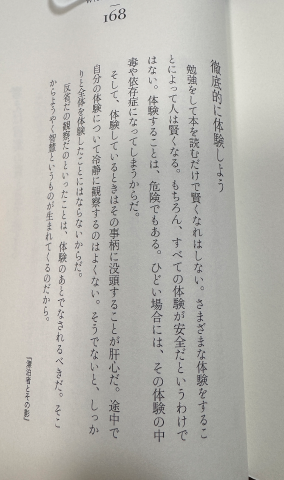 168
徹底的に体験しよう
勉強をして本を読むだけで賢くなれはしない。さまざまな体験をするこ
とによって人は賢くなる。もちろん、すべての体験が安全だというわけで
はない。体験することは、危険でもある。ひどい場合には、その体験の中
毒や依存症になってしまうからだ。
そして、体験しているときはその事柄に没頭することが肝心だ。途中で
自分の体験について冷静に観察するのはよくない。そうでないと、しっか
りと全体を体験したことにはならないからだ。
反省だの観察だのといったことは、体験のあとでなされるべきだ。そこ
からようやく智慧というものが生まれてくるのだから。
『漂泊者とその影』